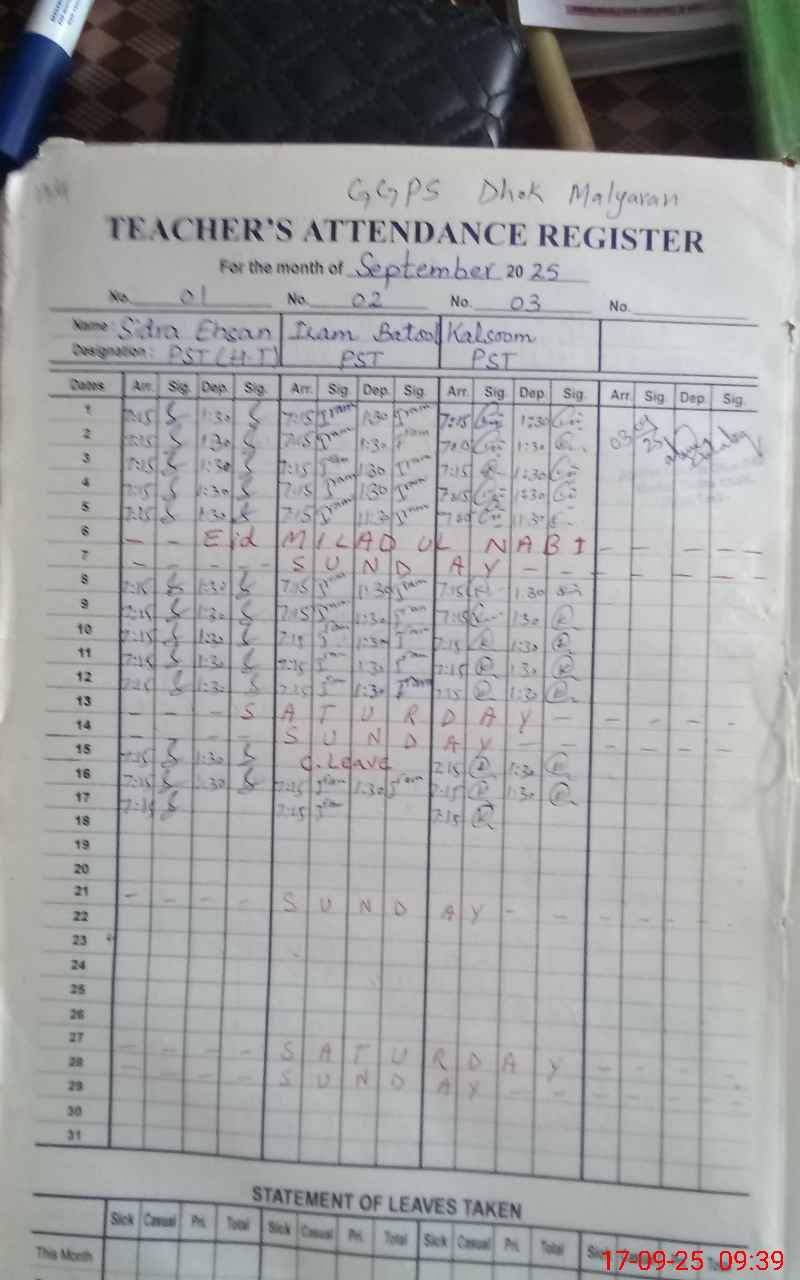 GGPS Dhok Malyaran
TEACHER'S ATTENDANCE REGISTER
For the month of September 2025
No. 01 No. 02 No. 03 No.
Name: Sidra Ehsan Iram Batool Kalsoom
Designation: PST (H-T) PST PST
Dates Arr. Sig. Dep. Sig. Arr. Sig. Dep. Sig. Arr. Sig. Dep. Sig. Arr. Sig. Dep. Sig.
1 7:15 1:30 7:15 Iram 1:30 Iram 7:15 1:30
2 7:15 1:30 7:15 Iram 1:30 Iram 1:30
3 7:15 1:30 7:15 Iram 1:30 Iram 7:15 1:30
4 7:15 1:30 7:15 Iram 1:30 Iram 7:15 1:30
5 7:15 1:30 7:15 Iram 11:30 Iram 11:30
6 - - Eid MILAD UL NABI - - - -
7 - - - - SUNDAY - - - - - -
8 7:15 1:30 7:15 Iram 1:30 Iram 7:15 1:30
9 7:15 1:30 7:15 Iram 1:30 Iram 7:15 1:30
10 7:15 1:30 7:15 Iram 1:30 Iram 7:15 1:30
11 7:15 1:30 7:15 Iram 1:30 Iram 7:15 1:30
12 7:15 1:30 7:15 Iram 1:30 Iram 7:15 1:30
13 - - - SATURDAY - - - - -
14 - - - - SUNDAY - - - - - -
15 7:15 1:30 C.Leave 7:15 1:30
16 7:15 1:30 7:15 Iram 1:30 Iram 7:15 1:30
17 7:15 7:15 Iram 7:15
18
19
20
21 - - - - SUNDAY - - - - - -
22
23
24
25
26
27 - - - - SATURDAY - - - -
28 - - - - SUNDAY - - - - - -
29
30
31
STATEMENT OF LEAVES TAKEN
Sick Casual Pri. Total Sick Casual Pri. Total Sick Casual Pri. Total Sick
This Month
17-09-25 09:39